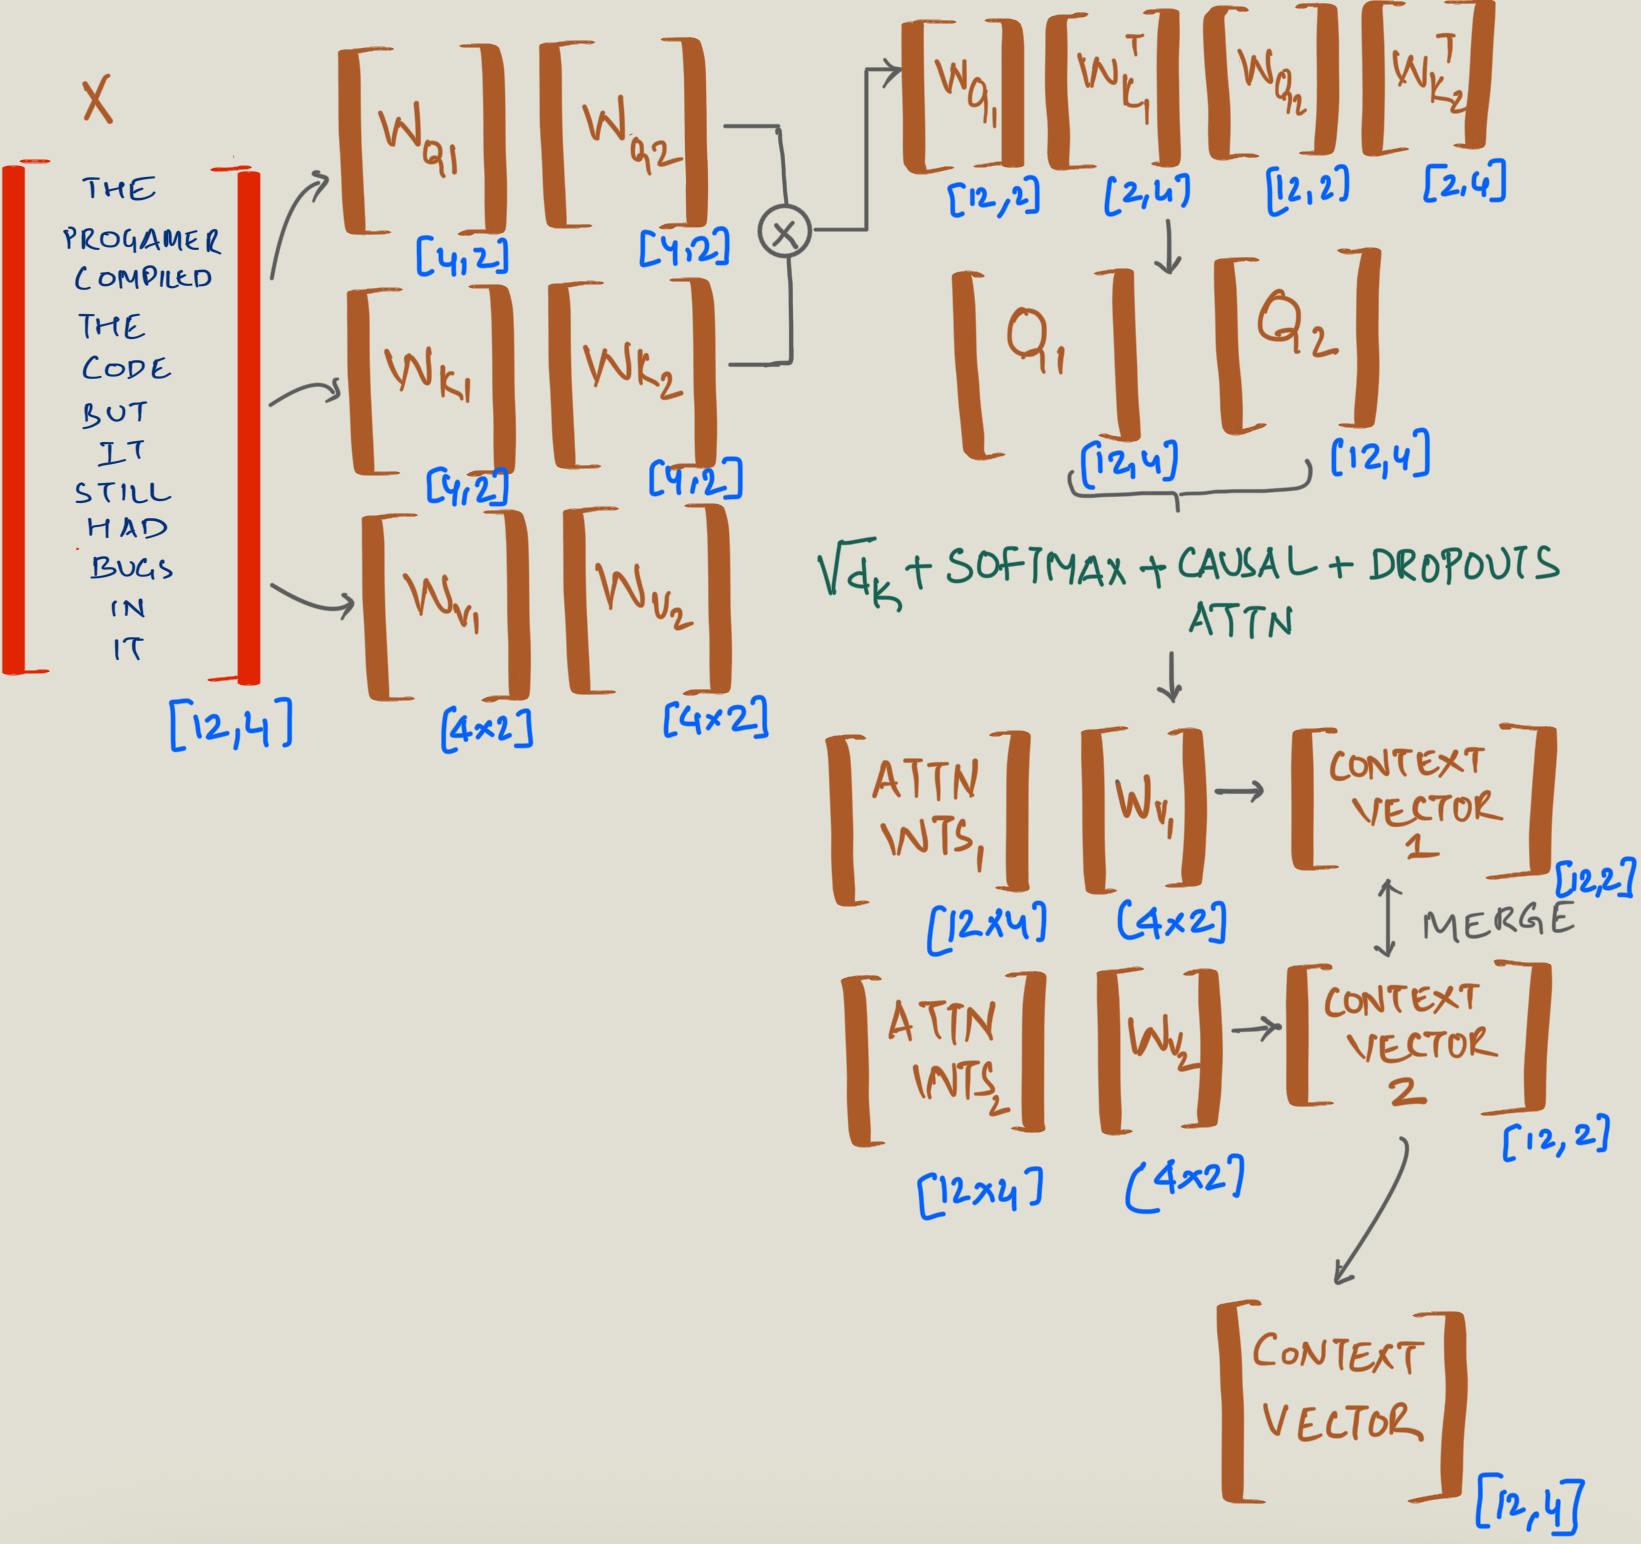 X
THE
PROGAMER
COMPILED
THE
CODE
BUT
IT
STILL
HAD
BUGS
IN
IT
[12,4]
WQ1 WQ2
[4,2] [4,2]
WK1 WK2
[4,2] [4,2]
WV1 WV2
[4x2] [4x2]
X
WQ1 WK1^T WQ2 WK2^T
[12,2] [2,4] [12,2] [2,4]
Q1 Q2
[12,4] [12,4]
√dK + SOFTMAX + CAUSAL + DROPOUTS
ATTN
ATTN
WTS1
[12x4]
WV1
(4x2]
CONTEXT
VECTOR
1
[12,2]
MERGE
ATTN
WTS2
[12x4]
WV2
(4x2]
CONTEXT
VECTOR
2
[12,2]
CONTEXT
VECTOR
[12,4]